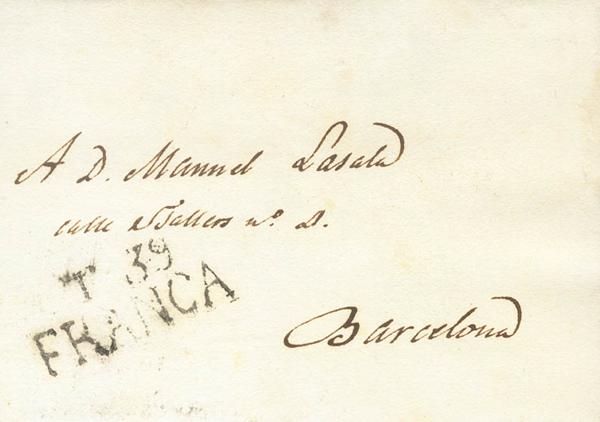 A D. Manuel Lasala
calle Tallers nº
T 39
FRANCA
Barcelona